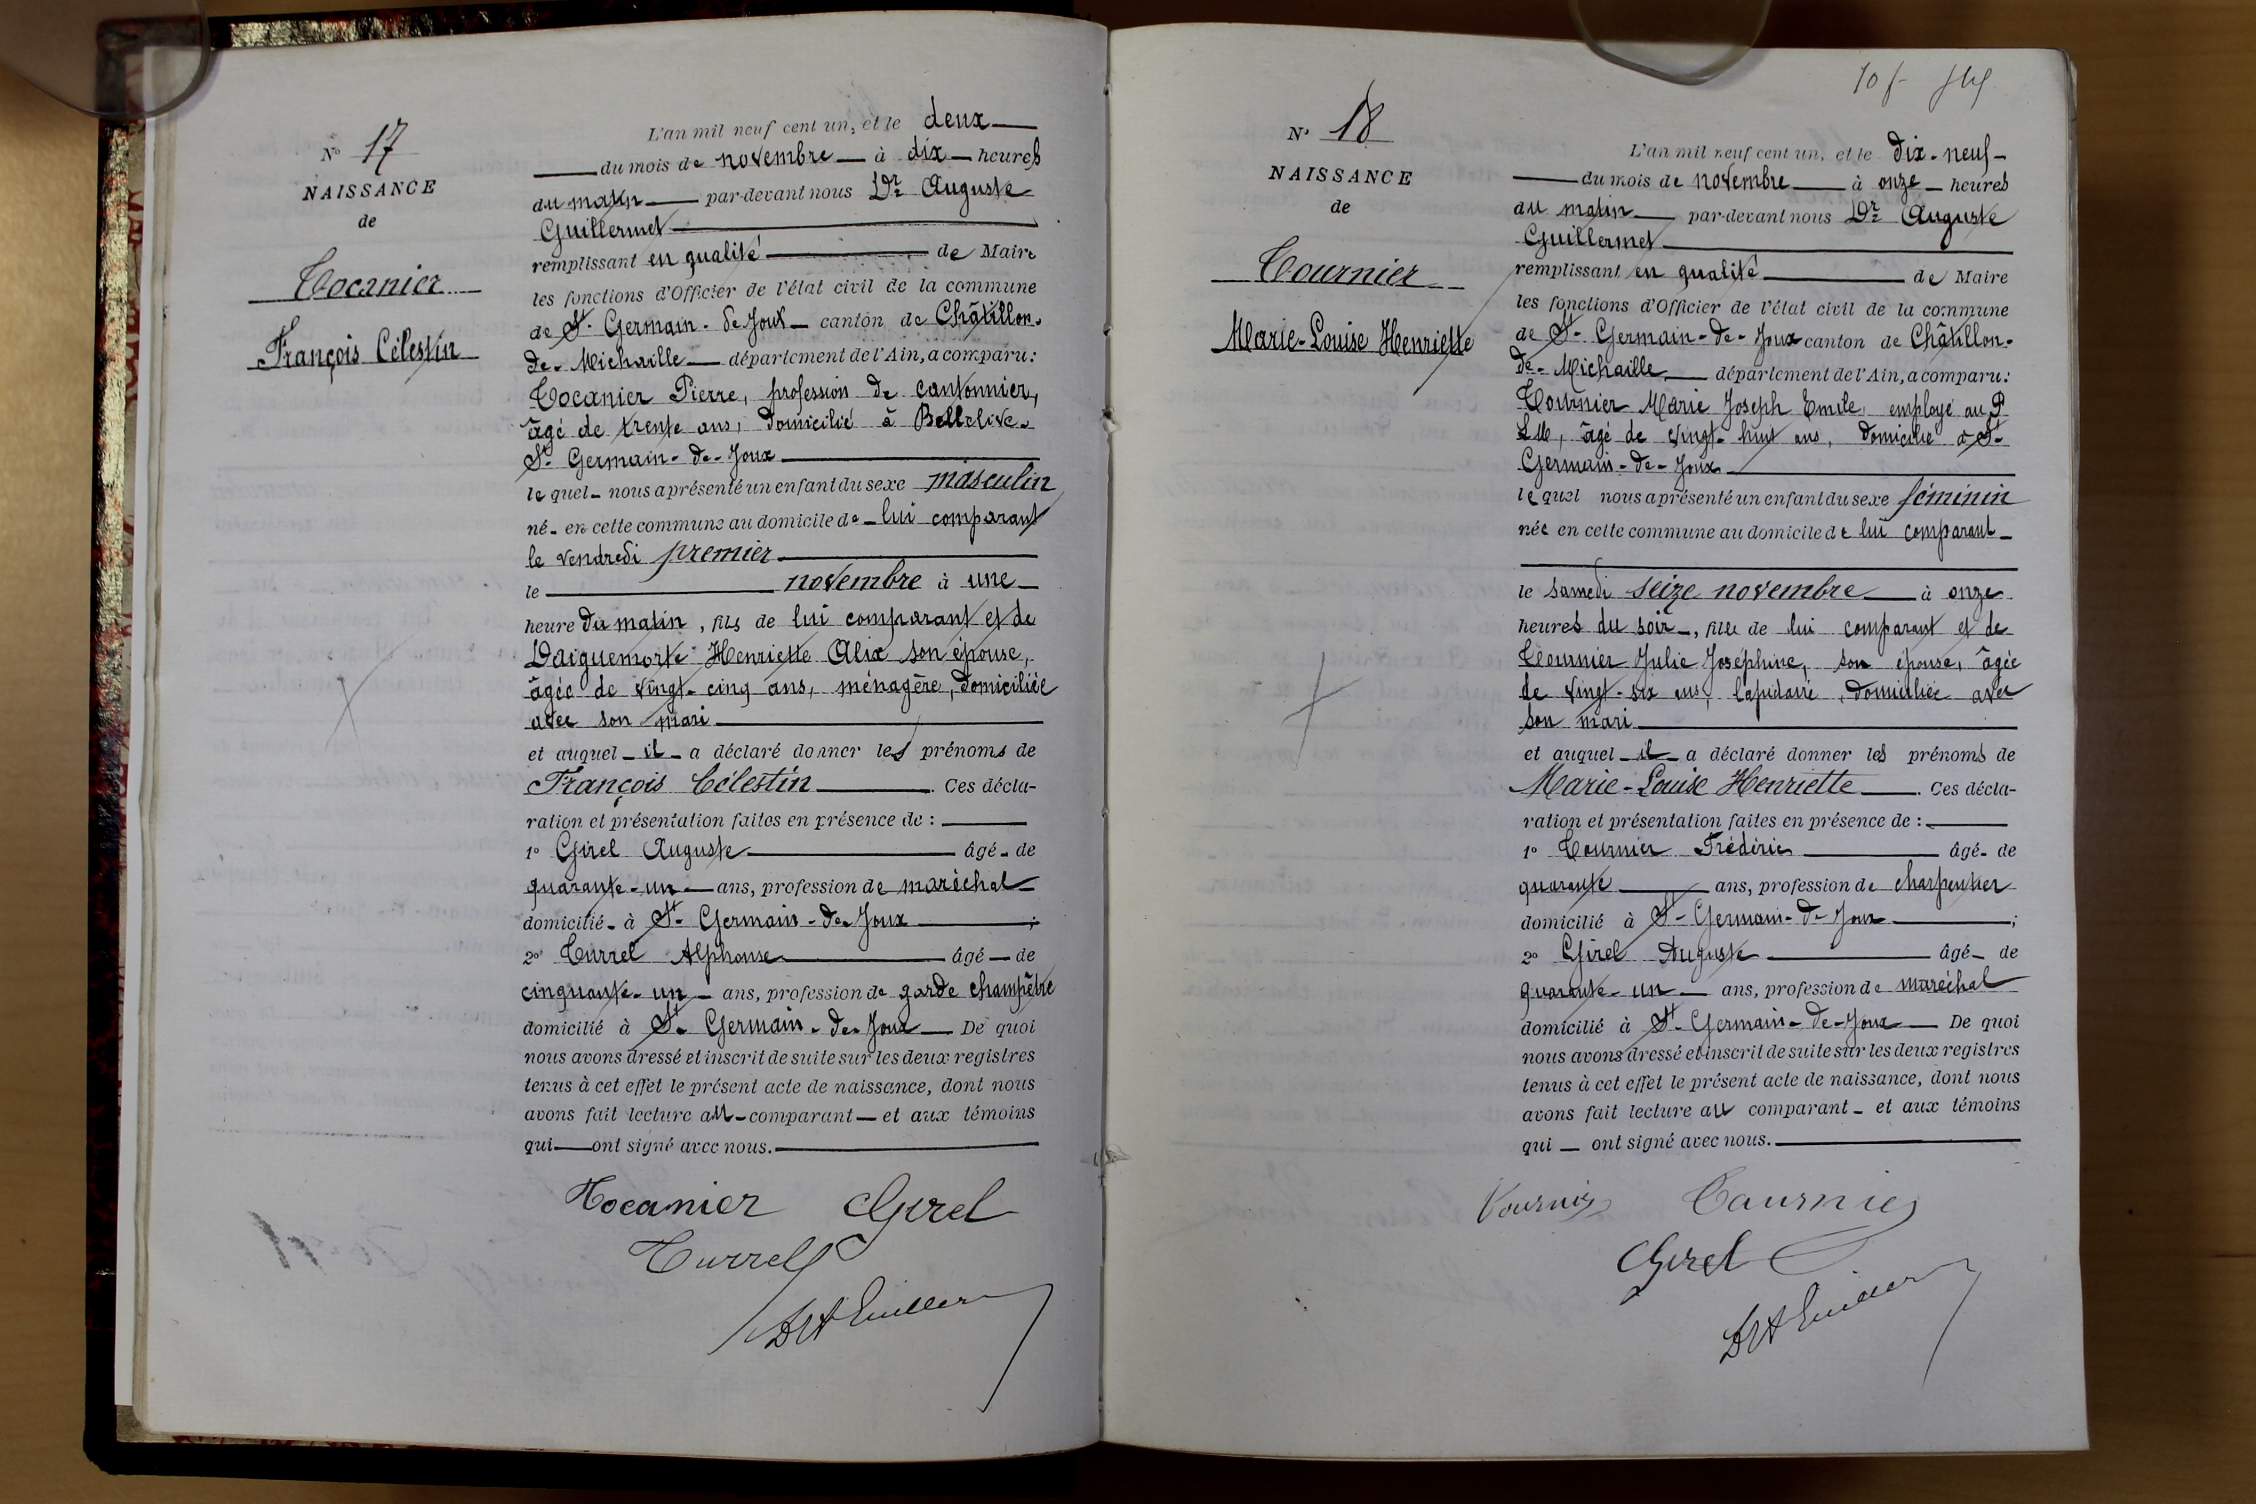 N° 17
NAISSANCE
de
Tocanier
François Célestin
L'an mil neuf cent un, et le deux
du mois de novembre à dix heures
du matin par-devant nous Dr Auguste
Guillermet
remplissant en qualité de Maire
les fonctions d'Officier de l'état civil de la commune
de St-Germain-de-Joux canton de Châtillon-
de-Michaille département de l'Ain, a comparu:
Tocanier Pierre, profession de cantonnier,
âgé de trente ans, domicilié à Bellelive-
St-Germain-de-Joux
lequel nous a présenté un enfant du sexe masculin
né en cette commune au domicile de lui comparant
le vendredi premier
le novembre à une
heure du matin, fils de lui comparant et de
Daiguemorte Henriette Alix son épouse,
âgée de vingt-cinq ans, ménagère, domiciliée
avec son mari
et auquel il a déclaré donner les prénoms de
François Célestin. Ces décla-
ration et présentation faites en présence de :
1° Girel Auguste âgé de
quarante-un ans, profession de maréchal
domicilié à St-Germain-de-Joux ;
2° Turrel Alphonse âgé de
cinquante-un ans, profession de garde champêtre
domicilié à St-Germain-de-Joux De quoi
nous avons dressé et inscrit de suite sur les deux registres
tenus à cet effet le présent acte de naissance, dont nous
avons fait lecture au comparant et aux témoins
qui ont signé avec nous.
Tocanier Girel
Turrel
Dr A Guillermet
N° 18
NAISSANCE
de
Tournier
Marie-Louise Henriette
L'an mil neuf cent un, et le dix-neuf
du mois de novembre à onze heures
du matin par-devant nous Dr Auguste
Guillermet
remplissant en qualité de Maire
les fonctions d'Officier de l'état civil de la commune
de St-Germain-de-Joux canton de Châtillon-
de-Michaille département de l'Ain, a comparu:
Tournier Marie Joseph Emile, employé au P
L M, âgé de vingt-huit ans, domicilié à St-
Germain-de-Joux
lequel nous a présenté un enfant du sexe féminin
née en cette commune au domicile de lui comparant
le samedi seize novembre à onze
heures du soir, fille de lui comparant et de
Tournier Julie Joséphine, son épouse, âgée
de vingt-six ans, lapidaire, domiciliée avec
son mari
et auquel il a déclaré donner les prénoms de
Marie-Louise Henriette. Ces décla-
ration et présentation faites en présence de :
1° Tournier Frédéric âgé de
quarante ans, profession de charpentier
domicilié à St-Germain-de-Joux ;
2° Girel Auguste âgé de
quarante-un ans, profession de maréchal
domicilié à St-Germain-de-Joux De quoi
nous avons dressé et inscrit de suite sur les deux registres
tenus à cet effet le présent acte de naissance, dont nous
avons fait lecture au comparant et aux témoins
qui ont signé avec nous.
Tournier Tournier
Girel
Dr A Guillermet